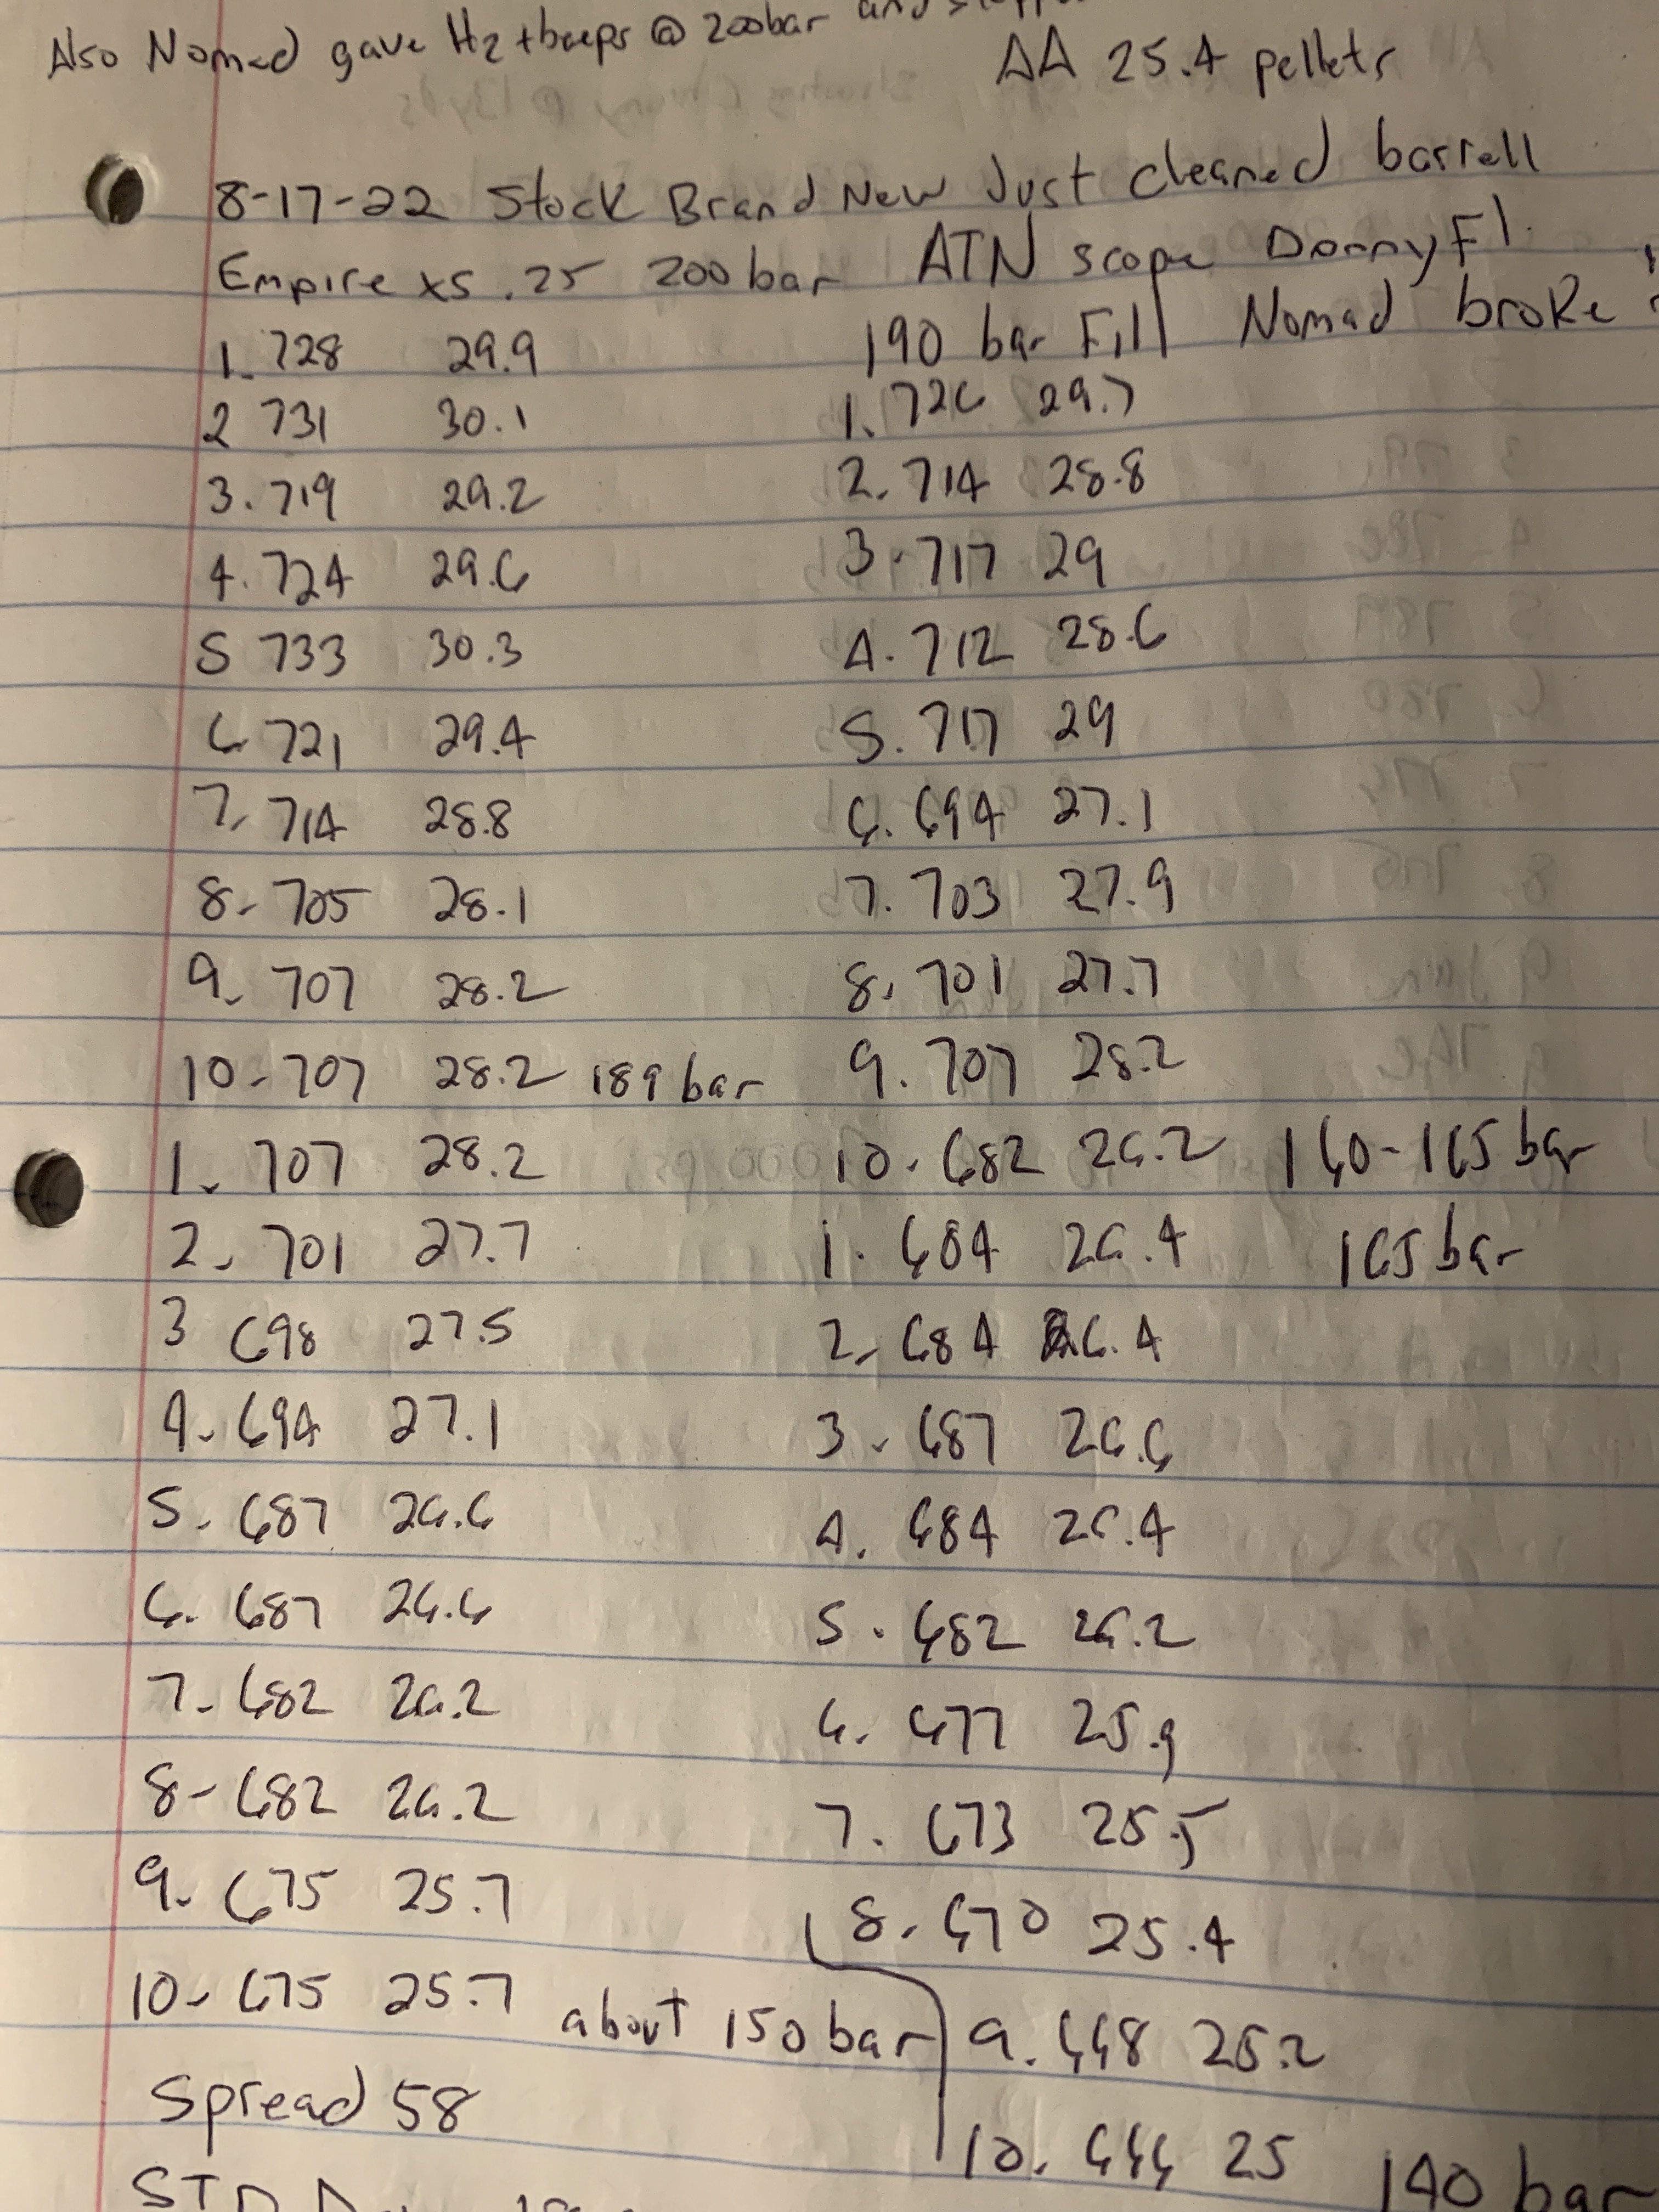 Also Nomad gave Hz + beeps @ 200bar and
AA 25.4 pellets
8-17-22 Stock Brand New Just cleaned barrell
Empire xs .25 200 bar ATN scope DonnyFl.
190 bar Fill Nomad broke
1. 728 29.9
2 731 30.1
3. 719 29.2
4. 724 29.6
5 733 30.3
6. 721 29.4
7. 714 28.8
8. 705 28.1
9. 707 28.2
10. 707 28.2 189 bar
1. 707 28.2
2. 701 27.7
3 698 27.5
4. 694 27.1
5. 687 26.6
6. 687 26.6
7. 682 26.2
8- 682 26.2
9. 675 25.7
10. 675 25.7 about 150 bar
Spread 58
1. 726 29.7
2. 714 28.8
3. 717 29
4. 712 28.6
5. 717 29
6. 694 27.1
7. 703 27.9
8. 701 27.7
9. 707 28.2
10. 682 26.2 160-165 bar
1. 684 26.4 165 bar
2. 684 26.4
3. 687 26.6
4. 684 26.4
5. 682 26.2
6. 677 25.9
7. 673 25.5
8. 670 25.4
9. 668 25.2
10. 666 25 140 bar